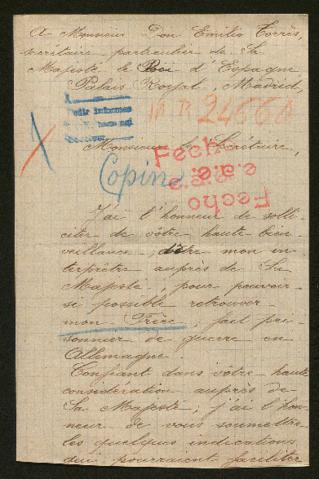 A Monsieur Don Emilio Torrès,
secrétaire particulier de Sa
Majesté le Roi d'Espagne
Palais Royal, Madrid,
24660
Monsieur le Secrétaire,
Fecho
Copino
Fecho
J'ai l'honneur de solli-
citer de vôtre haute bien-
veillance, d'être mon in-
terprête auprès de Sa
Majesté, pour pouvoir
si possible retrouver
mon Frère, fait pri-
sonnier de guerre en
Allemagne
Confiant dans vôtre haute
considération auprès de
Sa Majesté, j'ai l'hon-
neur de vous soumettre
les quelques indications
qui pourraient faciliter